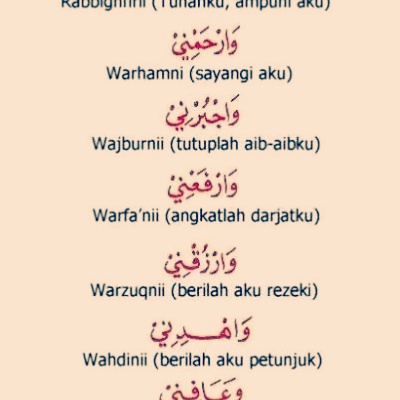 Rabbighfirii (Tuhanku, ampuni aku)
وَارْحَمْنِيْ
Warhamni (sayangi aku)
وَاجْبُرْنِيْ
Wajburnii (tutuplah aib-aibku)
وَارْفَعْنِيْ
Warfa'nii (angkatlah darjatku)
وَارْزُقْنِيْ
Warzuqnii (berilah aku rezeki)
وَاهْدِنِيْ
Wahdinii (berilah aku petunjuk)
وَعَافِنِيْ